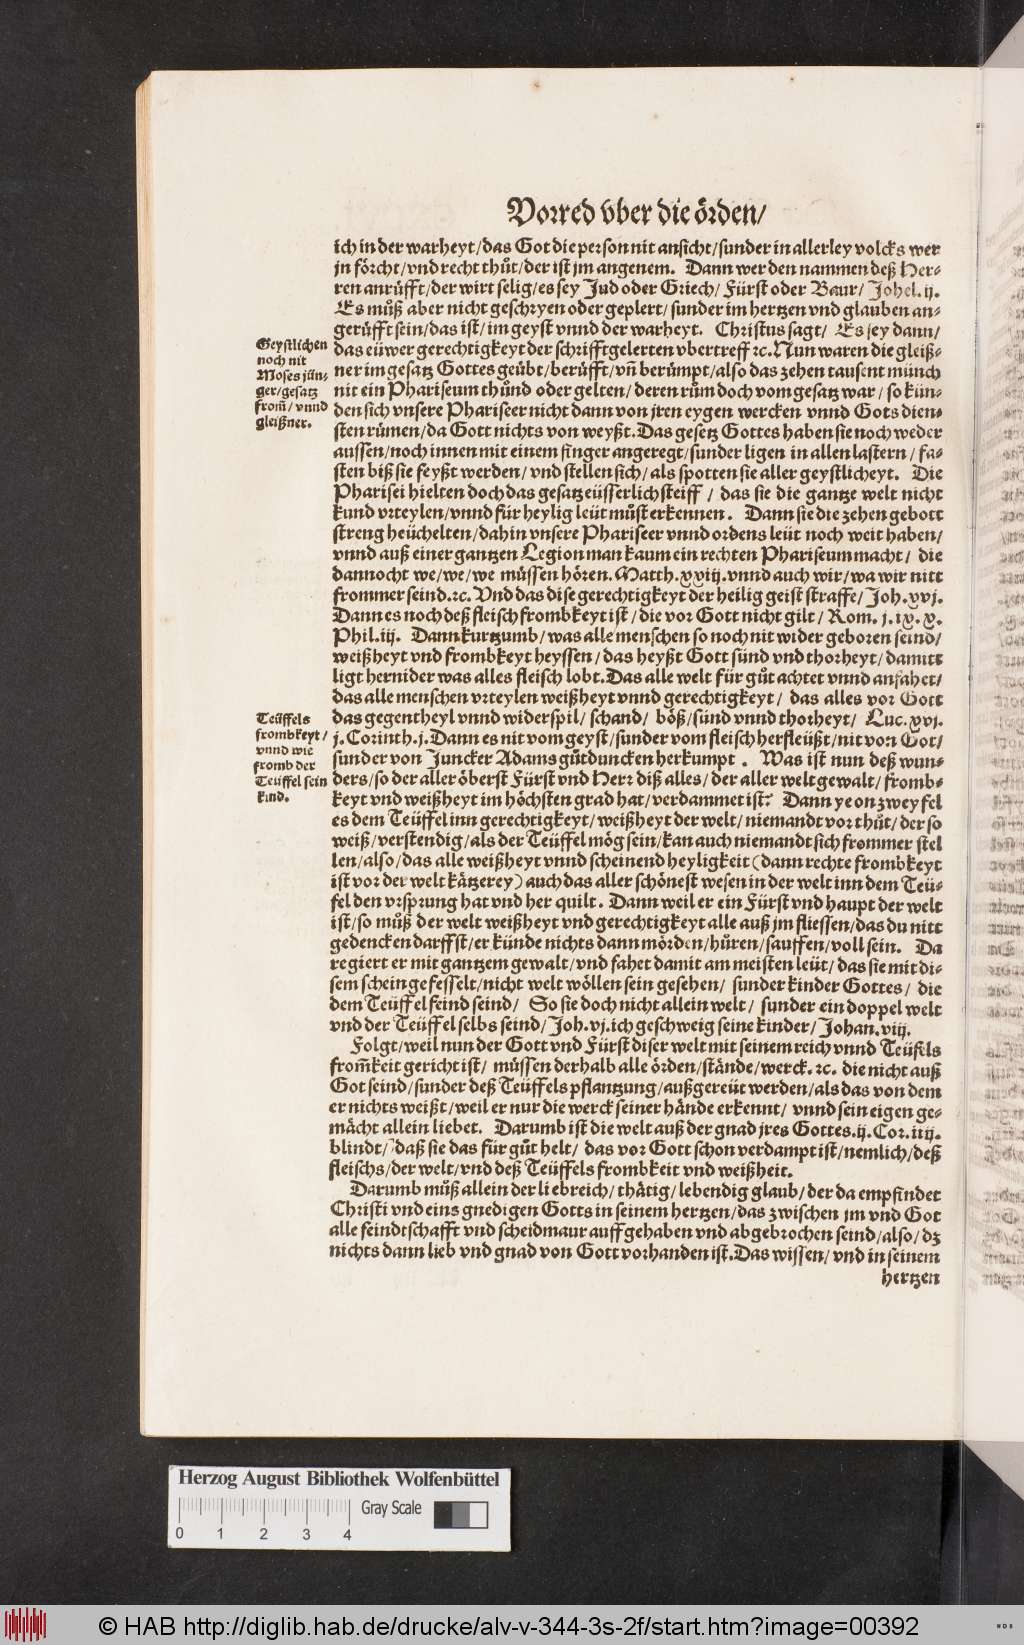 Vorred vber die örden/
ich in der warheyt/das Got die person nit ansicht/sunder in allerley volcks wer
jn förcht/vnd recht thůt/der ist jm angenem. Dann wer den nammen deß Her-
ren anrůfft/der wirt selig/es sey Jud oder Griech/ Fürst oder Baur/ Johel.ij.
Es můß aber nicht geschryen oder geplert/ sunder im hertzen vnd glauben an-
gerůfft sein/das ist/im geyst vnnd der warheyt. Christus sagt/ Es sey dann/
das eüwer gerechtigkeyt der schrifftgelerten vbertreff ꝛc. Nun waren die gleiß-
ner im gesatz Gottes geübt/berüfft/vñ berümpt/also das zehen tausent münch
nit ein Phariseum thůnd oder gelten/ deren rům doch vom gesatz war/ so kün-
den sich vnsere Phariseer nicht dann von jren eygen wercken vnnd Gots dien-
sten rümen/da Gott nichts von weyßt. Das gesetz Gottes haben sie noch weder
aussen/noch innen mit einem finger angeregt/sunder ligen in allen lastern/ fa-
sten biß sie feyßt werden/ vnd stellen sich/ als spotten sie aller geystlicheyt. Die
Pharisei hielten doch das gesatz eüsserlich steiff / das sie die gantze welt nicht
kund vrteylen/vnnd für heylig leüt můst erkennen. Dann sie die zehen gebott
streng heüchelten/dahin vnsere Phariseer vnnd ordens leüt noch weit haben/
vnnd auß einer gantzen Legion man kaum ein rechten Phariseum macht/ die
dannocht we/we/we müssen hören. Matth.xxiij. vnnd auch wir/wa wir nitt
frommer seind.ꝛc. Vnd das dise gerechtigkeyt der heilig geist straffe/ Joh.xvj.
Dann es noch deß fleisch frombkeyt ist/ die vor Gott nicht gilt/ Rom. j.ix.x.
Phil.iij. Dann kurtzumb/was alle menschen so noch nit wider geboren seind/
weißheyt vnd frombkeyt heyssen/das heyßt Gott sünd vnd thorheyt/ damitt
ligt hernider was alles fleisch lobt. Das alle welt für gůt achtet vnnd anfahet/
das alle menschen vrteylen weißheyt vnnd gerechtigkeyt/ das alles vor Gott
das gegentheyl vnnd widerspil/ schand/ böß/sünd vnnd thorheyt/ Luc.xvj.
j.Corinth.j. Dann es nit vom geyst/sunder vom fleisch herfleüßt/nit von Got/
sunder von Juncker Adams gůtduncken herkumpt. Was ist nun deß wun-
ders/so der aller öberst Fürst vnd Herꝛ diß alles/der aller welt gewalt/fromb-
keyt vnd weißheyt im höchsten grad hat/verdammet ist? Dann ye on zweyfel
es dem Teüffel inn gerechtigkeyt/weißheyt der welt/niemandt vor thůt/der so
weiß/verstendig/als der Teüffel mög sein/kan auch niemandt sich frommer stel
len/also/das alle weißheyt vnnd scheinend heyligkeit (dann rechte frombkeyt
ist vor der welt kätzerey) auch das aller schönest wesen in der welt inn dem Teü-
fel den vrsprung hat vnd her quilt. Dann weil er ein Fürst vnd haupt der welt
ist/so můß der welt weißheyt vnd gerechtigkeyt alle auß jm fliessen/das du nitt
gedencken darffst/er künde nichts dann mörden/hůren/sauffen/voll sein. Da
regiert er mit gantzem gewalt/vnd fahet damit am meisten leüt/das sie mit di-
sem schein gefesselt/nicht welt wöllen sein gesehen/ sunder kinder Gottes/ die
dem Teüffel feind seind/ So sie doch nicht allein welt/ sunder ein doppel welt
vnd der Teüffel selbs seind/Joh.vj. ich geschweig seine kinder/ Johan.viij.
Folgt/weil nun der Gott vnd Fürst diser welt mit seinem reich vnnd Teüfels
from̄keit gericht ist/ müssen derhalb alle örden/stände/werck.ꝛc. die nicht auß
Got seind/sunder deß Teüffels pflantzung/außgereüt werden/als das von dem
er nichts weißt/weil er nur die werck seiner hände erkennt/ vnnd sein eigen ge-
mächt allein liebet. Darumb ist die welt auß der gnad jres Gottes.ij.Cor.iiij.
blindt/ daß sie das für gůt helt/ das vor Gott schon verdampt ist/nemlich/deß
fleischs/der welt/vnd deß Teüffels frombkeit vnd weißheit.
Darumb můß allein der liebreich/thätig/lebendig glaub/der da empfindet
Christi vnd eins gnedigen Gotts in seinem hertzen/das zwischen jm vnd Got
alle feindtschafft vnd scheidmaur auffgehaben vnd abgebrochen seind/also/dz
nichts dann lieb vnd gnad von Gott vorhanden ist. Das wissen/ vnd in seinem
hertzen
Geystlichen
noch nit
Moses jün-
ger/gesatz
from̄/ vnnd
gleißner.
Teüffels
frombkeyt/
vnnd wie
fromb der
Teüffel sein
kind.
Herzog August Bibliothek Wolfenbüttel
Gray Scale
0 1 2 3 4
© HAB http://diglib.hab.de/drucke/alv-v-344-3s-2f/start.htm?image=00392